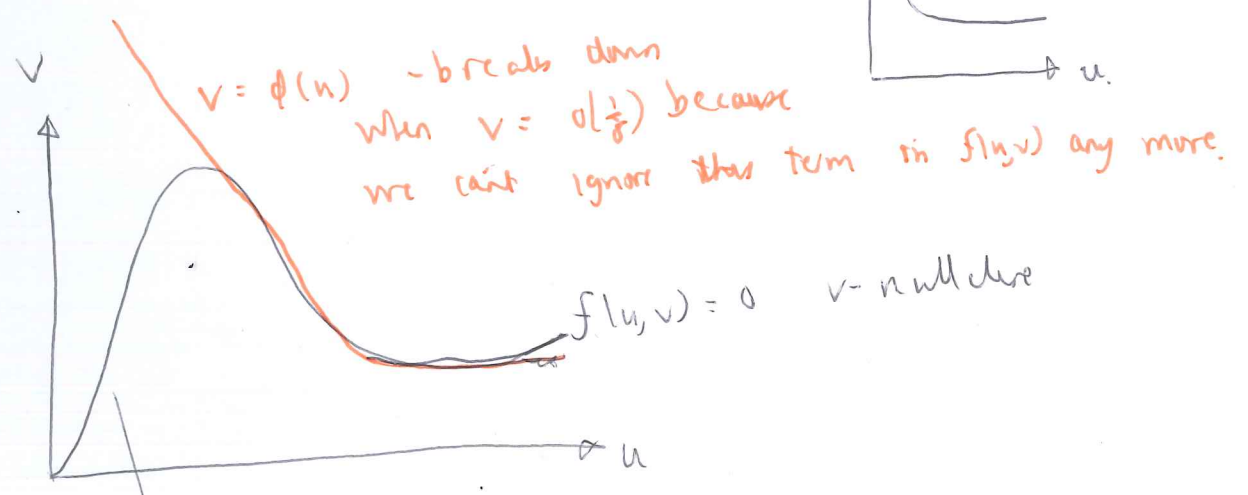 u.
v
v = ϕ(u) - breaks down
when v = O(1/δ) because
we can't ignore this term in f(u,v) any more.
f(u,v) = 0 v-nullcline
u